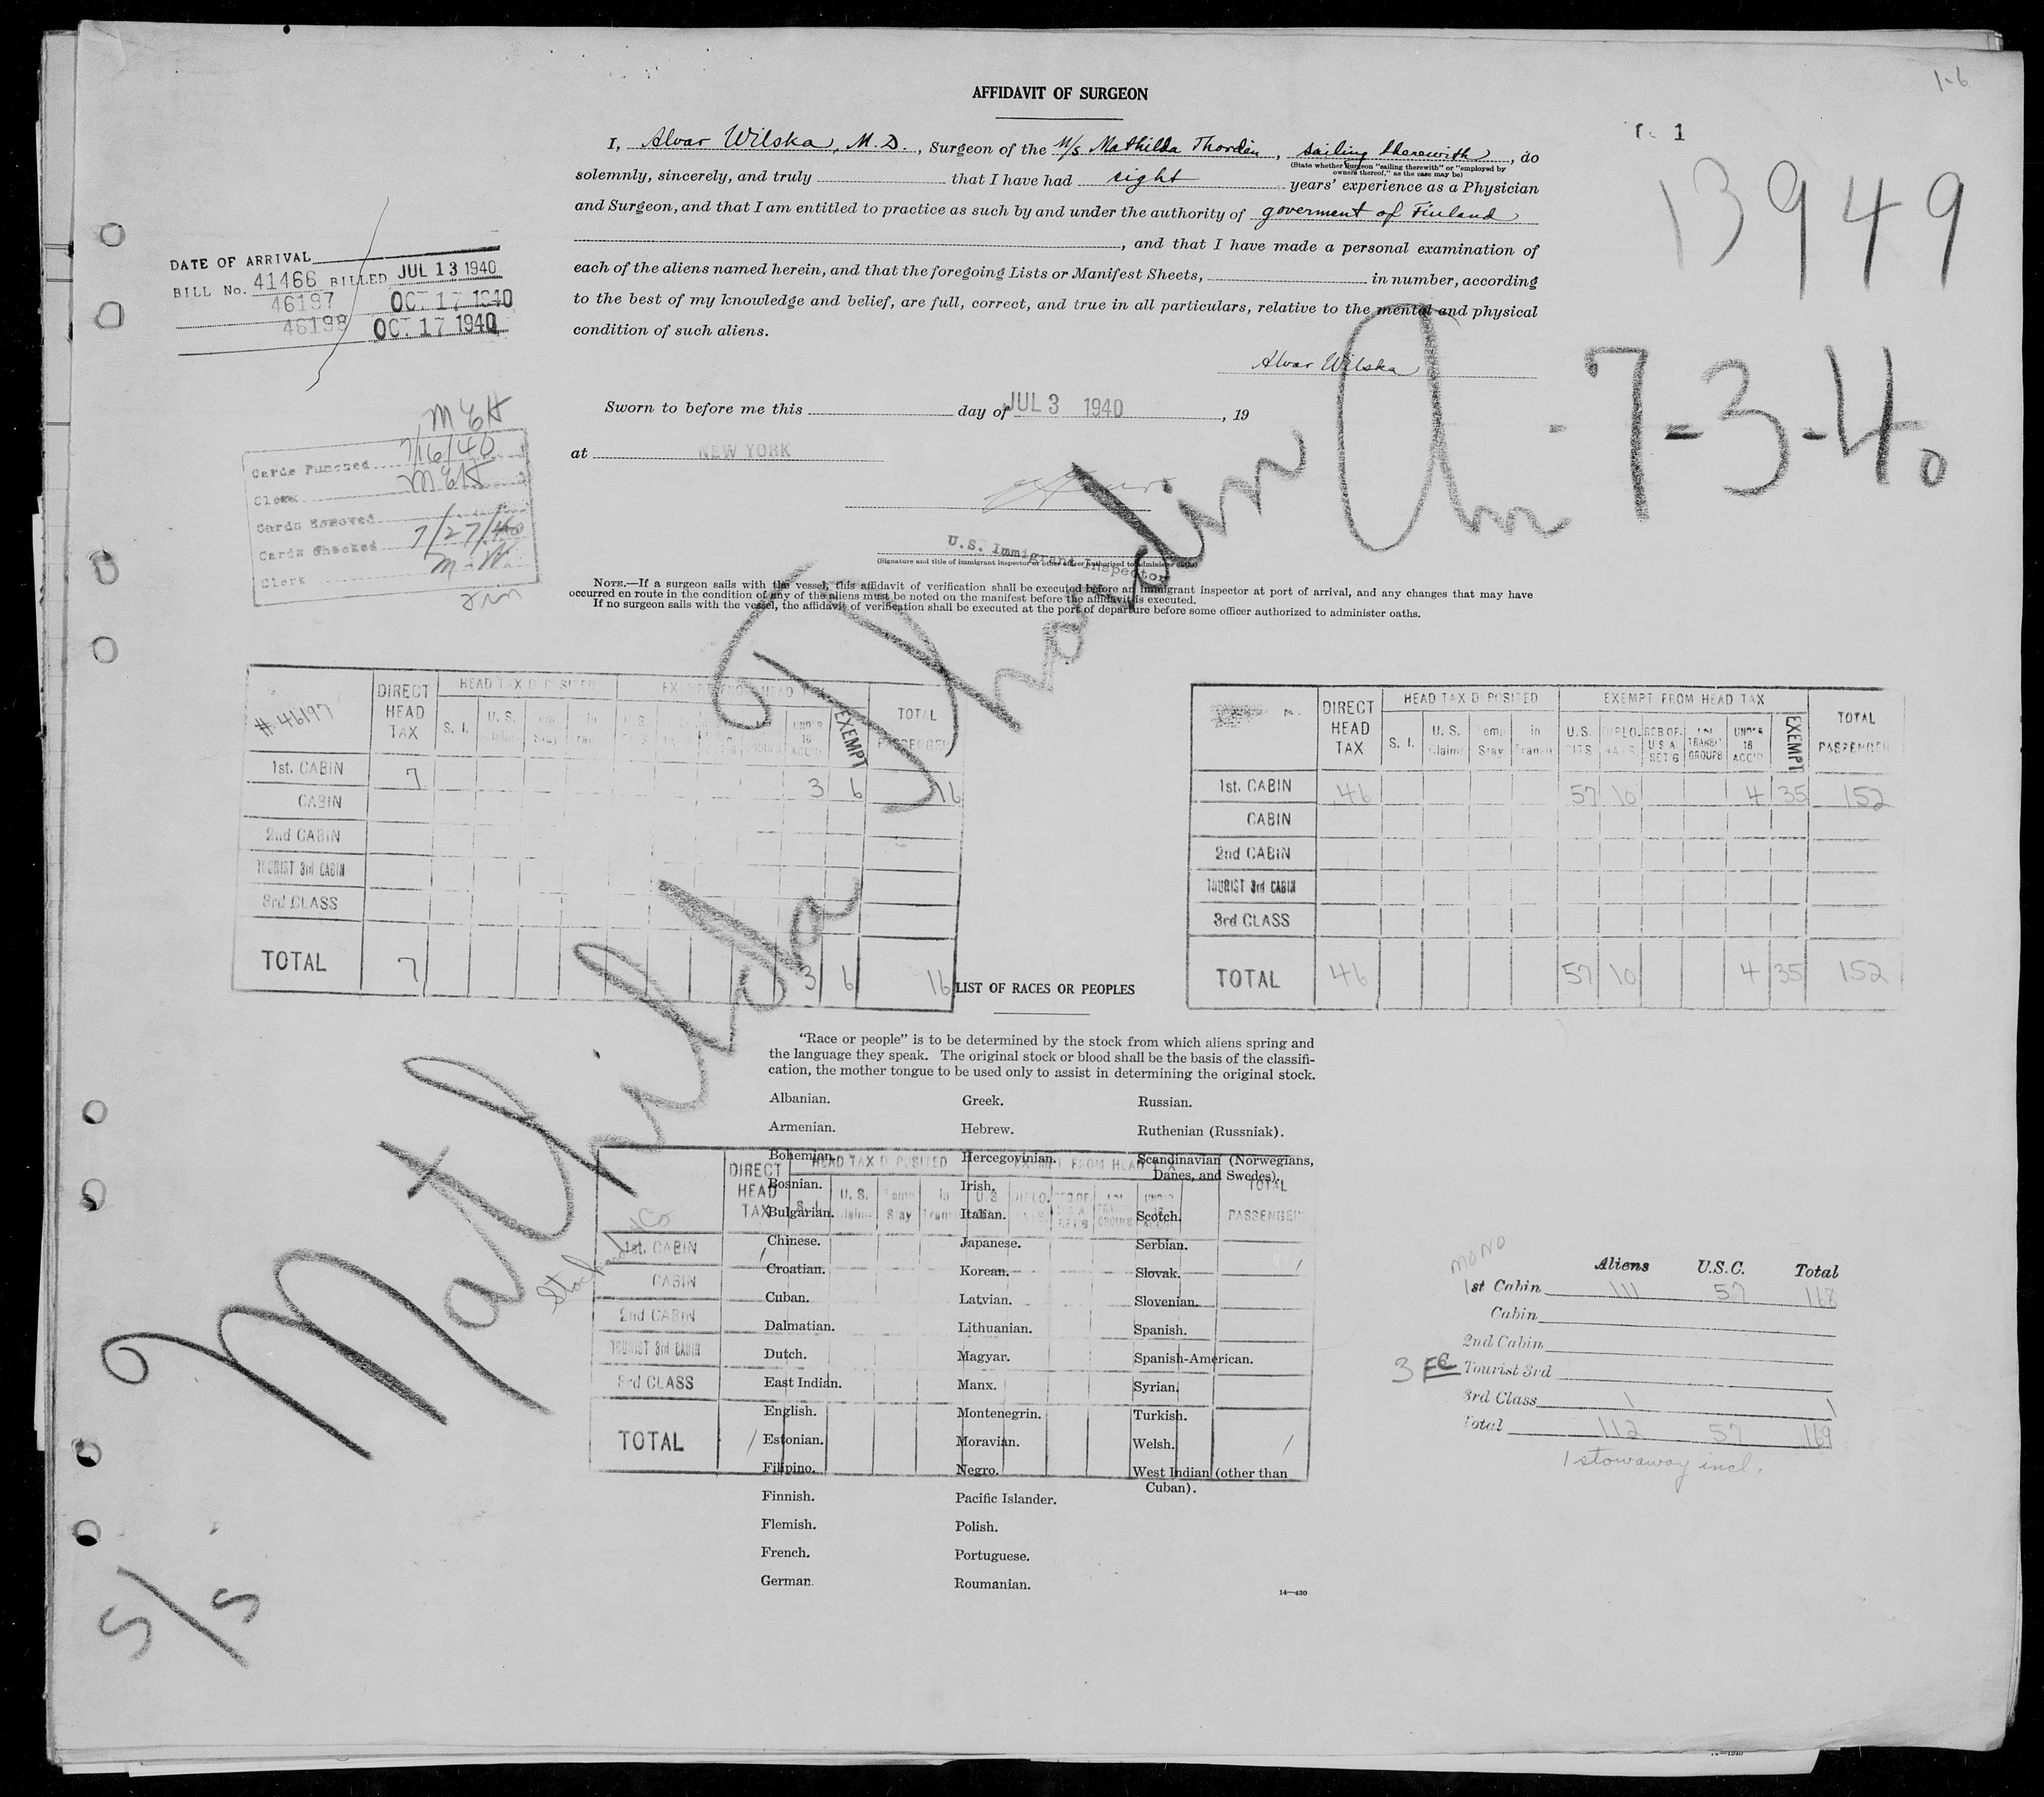 1-6
AFFIDAVIT OF SURGEON
1
13949
I, Alvar Wilska, M.D., Surgeon of the M/S Mathilda Thorden, sailing therewith, do
(State whether Surgeon "sailing therewith" or "employed by owners thereof," as the case may be)
solemnly, sincerely, and truly that I have had eight years' experience as a Physician
and Surgeon, and that I am entitled to practice as such by and under the authority of goverment of Finland
, and that I have made a personal examination of
each of the aliens named herein, and that the foregoing Lists or Manifest Sheets, in number, according
to the best of my knowledge and belief, are full, correct, and true in all particulars, relative to the mental and physical
condition of such aliens.
Alvar Wilska
Sworn to before me this day of JUL 3 1940, 19
at NEW YORK
U.S. Immigrant Inspector
(Signature and title of immigrant inspector or other officer authorized to administer oaths)
NOTE.—If a surgeon sails with the vessel, this affidavit of verification shall be executed before an immigrant inspector at port of arrival, and any changes that may have
occurred en route in the condition of any of the aliens must be noted on the manifest before the affidavit is executed.
If no surgeon sails with the vessel, the affidavit of verification shall be executed at the port of departure before some officer authorized to administer oaths.
DATE OF ARRIVAL
BILL No. 41466 BILLED JUL 13 1940
46197 OCT 17 1940
46198 OCT 17 1940
MEH
Cards Punched 7/16/40
Clerk MEH
Cards Removed
Cards Checked 7/27/40
Clerk M.W.
S/S Mathilda Thorden Arr - 7-3-40
#46197 DIRECT HEAD TAX HEAD TAX DEPOSITED EXEMPT FROM HEAD TAX TOTAL PASSENGERS
S. I. U. S. Claims Temp Stay in Trans UNDER 16 ACC'D EXEMPT
1st. CABIN 7 3 6 16
CABIN
2nd CABIN
TOURIST 3rd CABIN
3rd CLASS
TOTAL 7 3 6 16
DIRECT HEAD TAX HEAD TAX D POSITED EXEMPT FROM HEAD TAX TOTAL PASSENGER
S. I. U. S. Claims Temp Stay in Transit U.S. CITS DIPLOMATS RES OF U.S.A. RET'G IN TRANSIT GROUPS UNDER 16 ACC'D EXEMPT
1st. CABIN 46 57 10 4 35 152
CABIN
2nd CABIN
TOURIST 3rd CABIN
3rd CLASS
TOTAL 46 57 10 4 35 152
LIST OF RACES OR PEOPLES
"Race or people" is to be determined by the stock from which aliens spring and
the language they speak. The original stock or blood shall be the basis of the classifi-
cation, the mother tongue to be used only to assist in determining the original stock.
Albanian. Greek. Russian.
Armenian. Hebrew. Ruthenian (Russniak).
Bohemian. Hercegovinian. Scandinavian (Norwegians,
Danes, and Swedes).
Bosnian. Irish.
Bulgarian. Italian. Scotch.
Chinese. Japanese. Serbian.
Croatian. Korean. Slovak.
Cuban. Latvian. Slovenian.
Dalmatian. Lithuanian. Spanish.
Dutch. Magyar. Spanish-American.
East Indian. Manx. Syrian.
English. Montenegrin. Turkish.
Estonian. Moravian. Welsh.
Filipino. Negro. West Indian (other than
Cuban).
Finnish. Pacific Islander.
Flemish. Polish.
French. Portuguese.
German. Roumanian.
14—430
DIRECT HEAD TAX HEAD TAX D POSITED EXEMPT FROM HEAD TOTAL PASSENGER
U. S. Claim Temp Stay in Trans
1st. CABIN 1 1
CABIN
2nd CABIN
TOURIST 3rd CABIN
3rd CLASS
TOTAL 1 1
MONO
Aliens U.S.C. Total
1st Cabin 111 57 168
Cabin
2nd Cabin
3 Tourist 3rd
3rd Class 1 1
Total 112 57 169
1 stowaway incl.